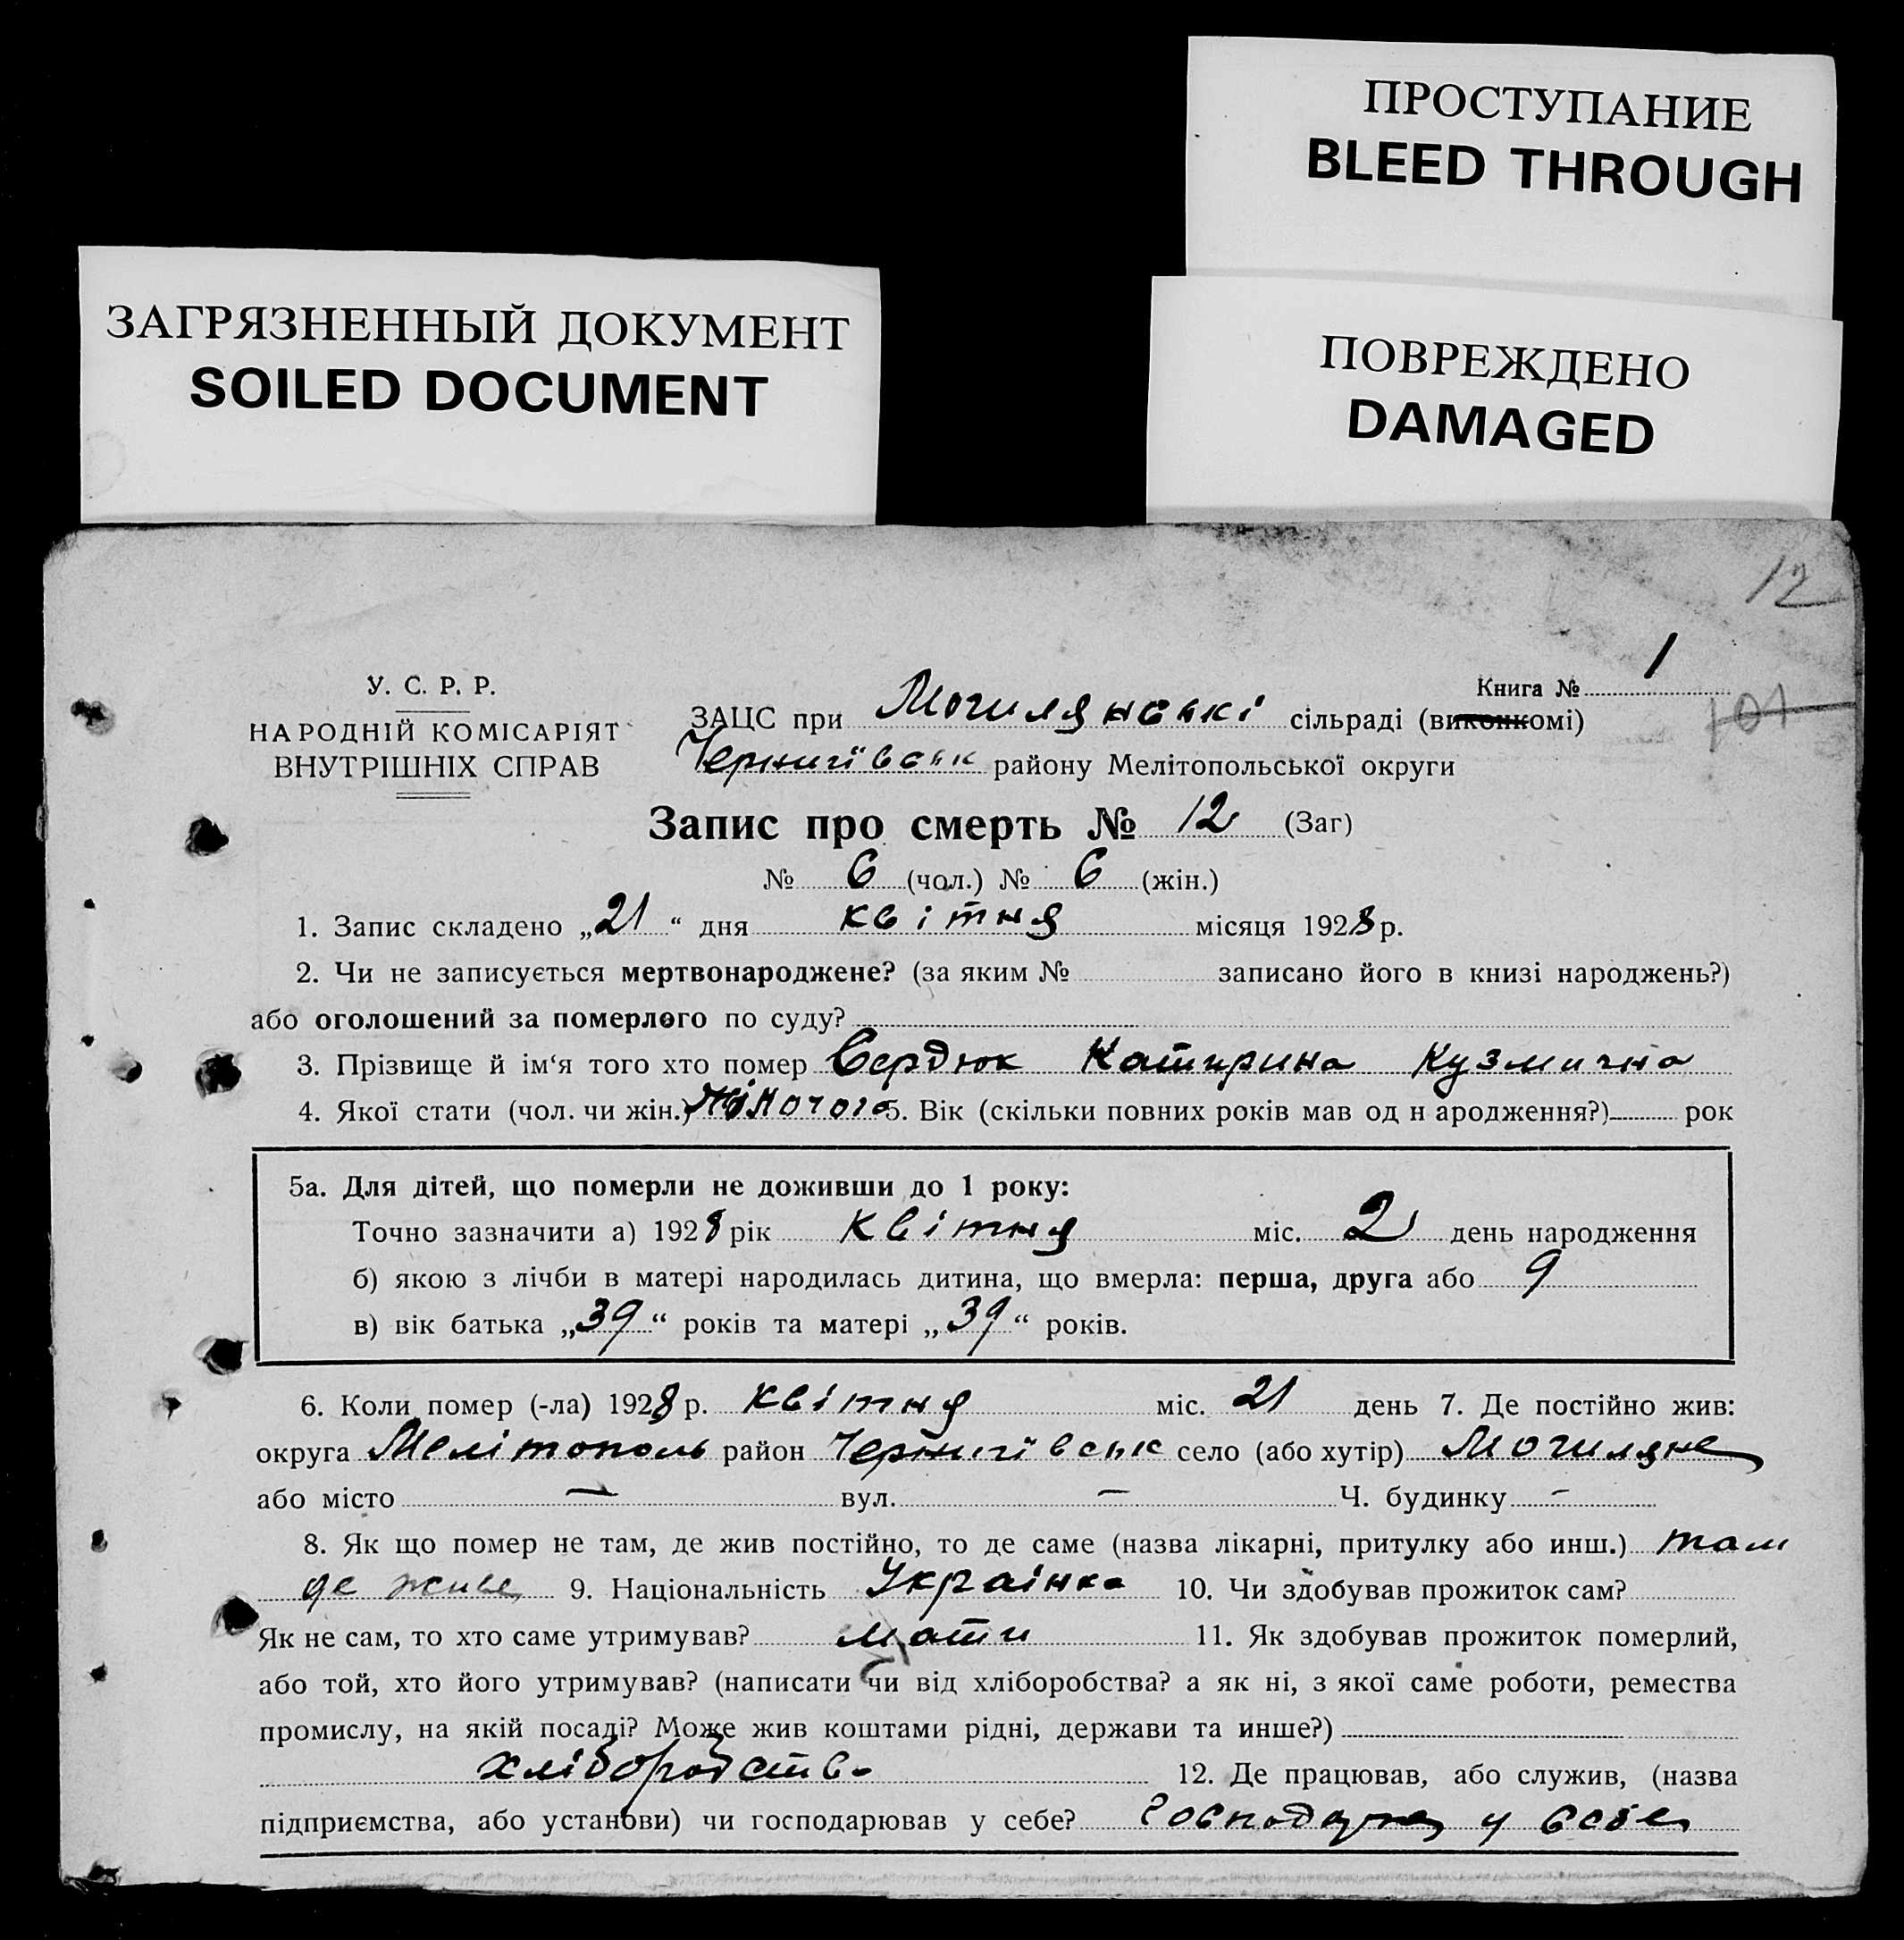 ПРОСТУПАНИЕ
BLEED THROUGH
ЗАГРЯЗНЕННЫЙ ДОКУМЕНТ
SOILED DOCUMENT
ПОВРЕЖДЕНО
DAMAGED
12
У. С. Р. Р.
НАРОДНІЙ КОМІСАРІЯТ
ВНУТРІШНІХ СПРАВ
Книга № 1
101
ЗАЦС при Могилянські сільраді (виконкомі)
Чернигівськ району Мелітопольської округи
Запис про смерть № 12 (Заг)
№ 6 (чол.) № 6 (жін.)
1. Запис складено „21“ дня квітня місяця 1928 р.
2. Чи не записується мертвонароджене? (за яким № записано його в книзі народжень?)
або оголошений за померлого по суду?
3. Прізвище й ім‘я того хто помер Сердюк Катирина Кузмична
4. Якої стати (чол. чи жін.) жіночого 5. Вік (скільки повних років мав од н ародження?) рок
5а. Для дітей, що померли не доживши до 1 року:
Точно зазначити а) 1928 рік квітня міс. 2 день народження
б) якою з лічби в матері народилась дитина, що вмерла: перша, друга або 9
в) вік батька „39“ років та матері „39“ років.
6. Коли помер (-ла) 1928 р. квітня міс. 21 день 7. Де постійно жив:
округа Мелітополь район Чернигівськ село (або хутір) Могиляне
або місто — вул. — Ч. будинку -
8. Як що помер не там, де жив постійно, то де саме (назва лікарні, притулку або инш.) там
де живе 9. Національність Українка 10. Чи здобував прожиток сам?
Як не сам, то хто саме утримував? мати 11. Як здобував прожиток померлий,
або той, хто його утримував? (написати чи від хліборобства? а як ні, з якої саме роботи, ремества
промислу, на якій посаді? Може жив коштами рідні, держави та инше?)
хліборобство 12. Де працював, або служив, (назва
підприємства, або установи) чи господарював у себе? у себе